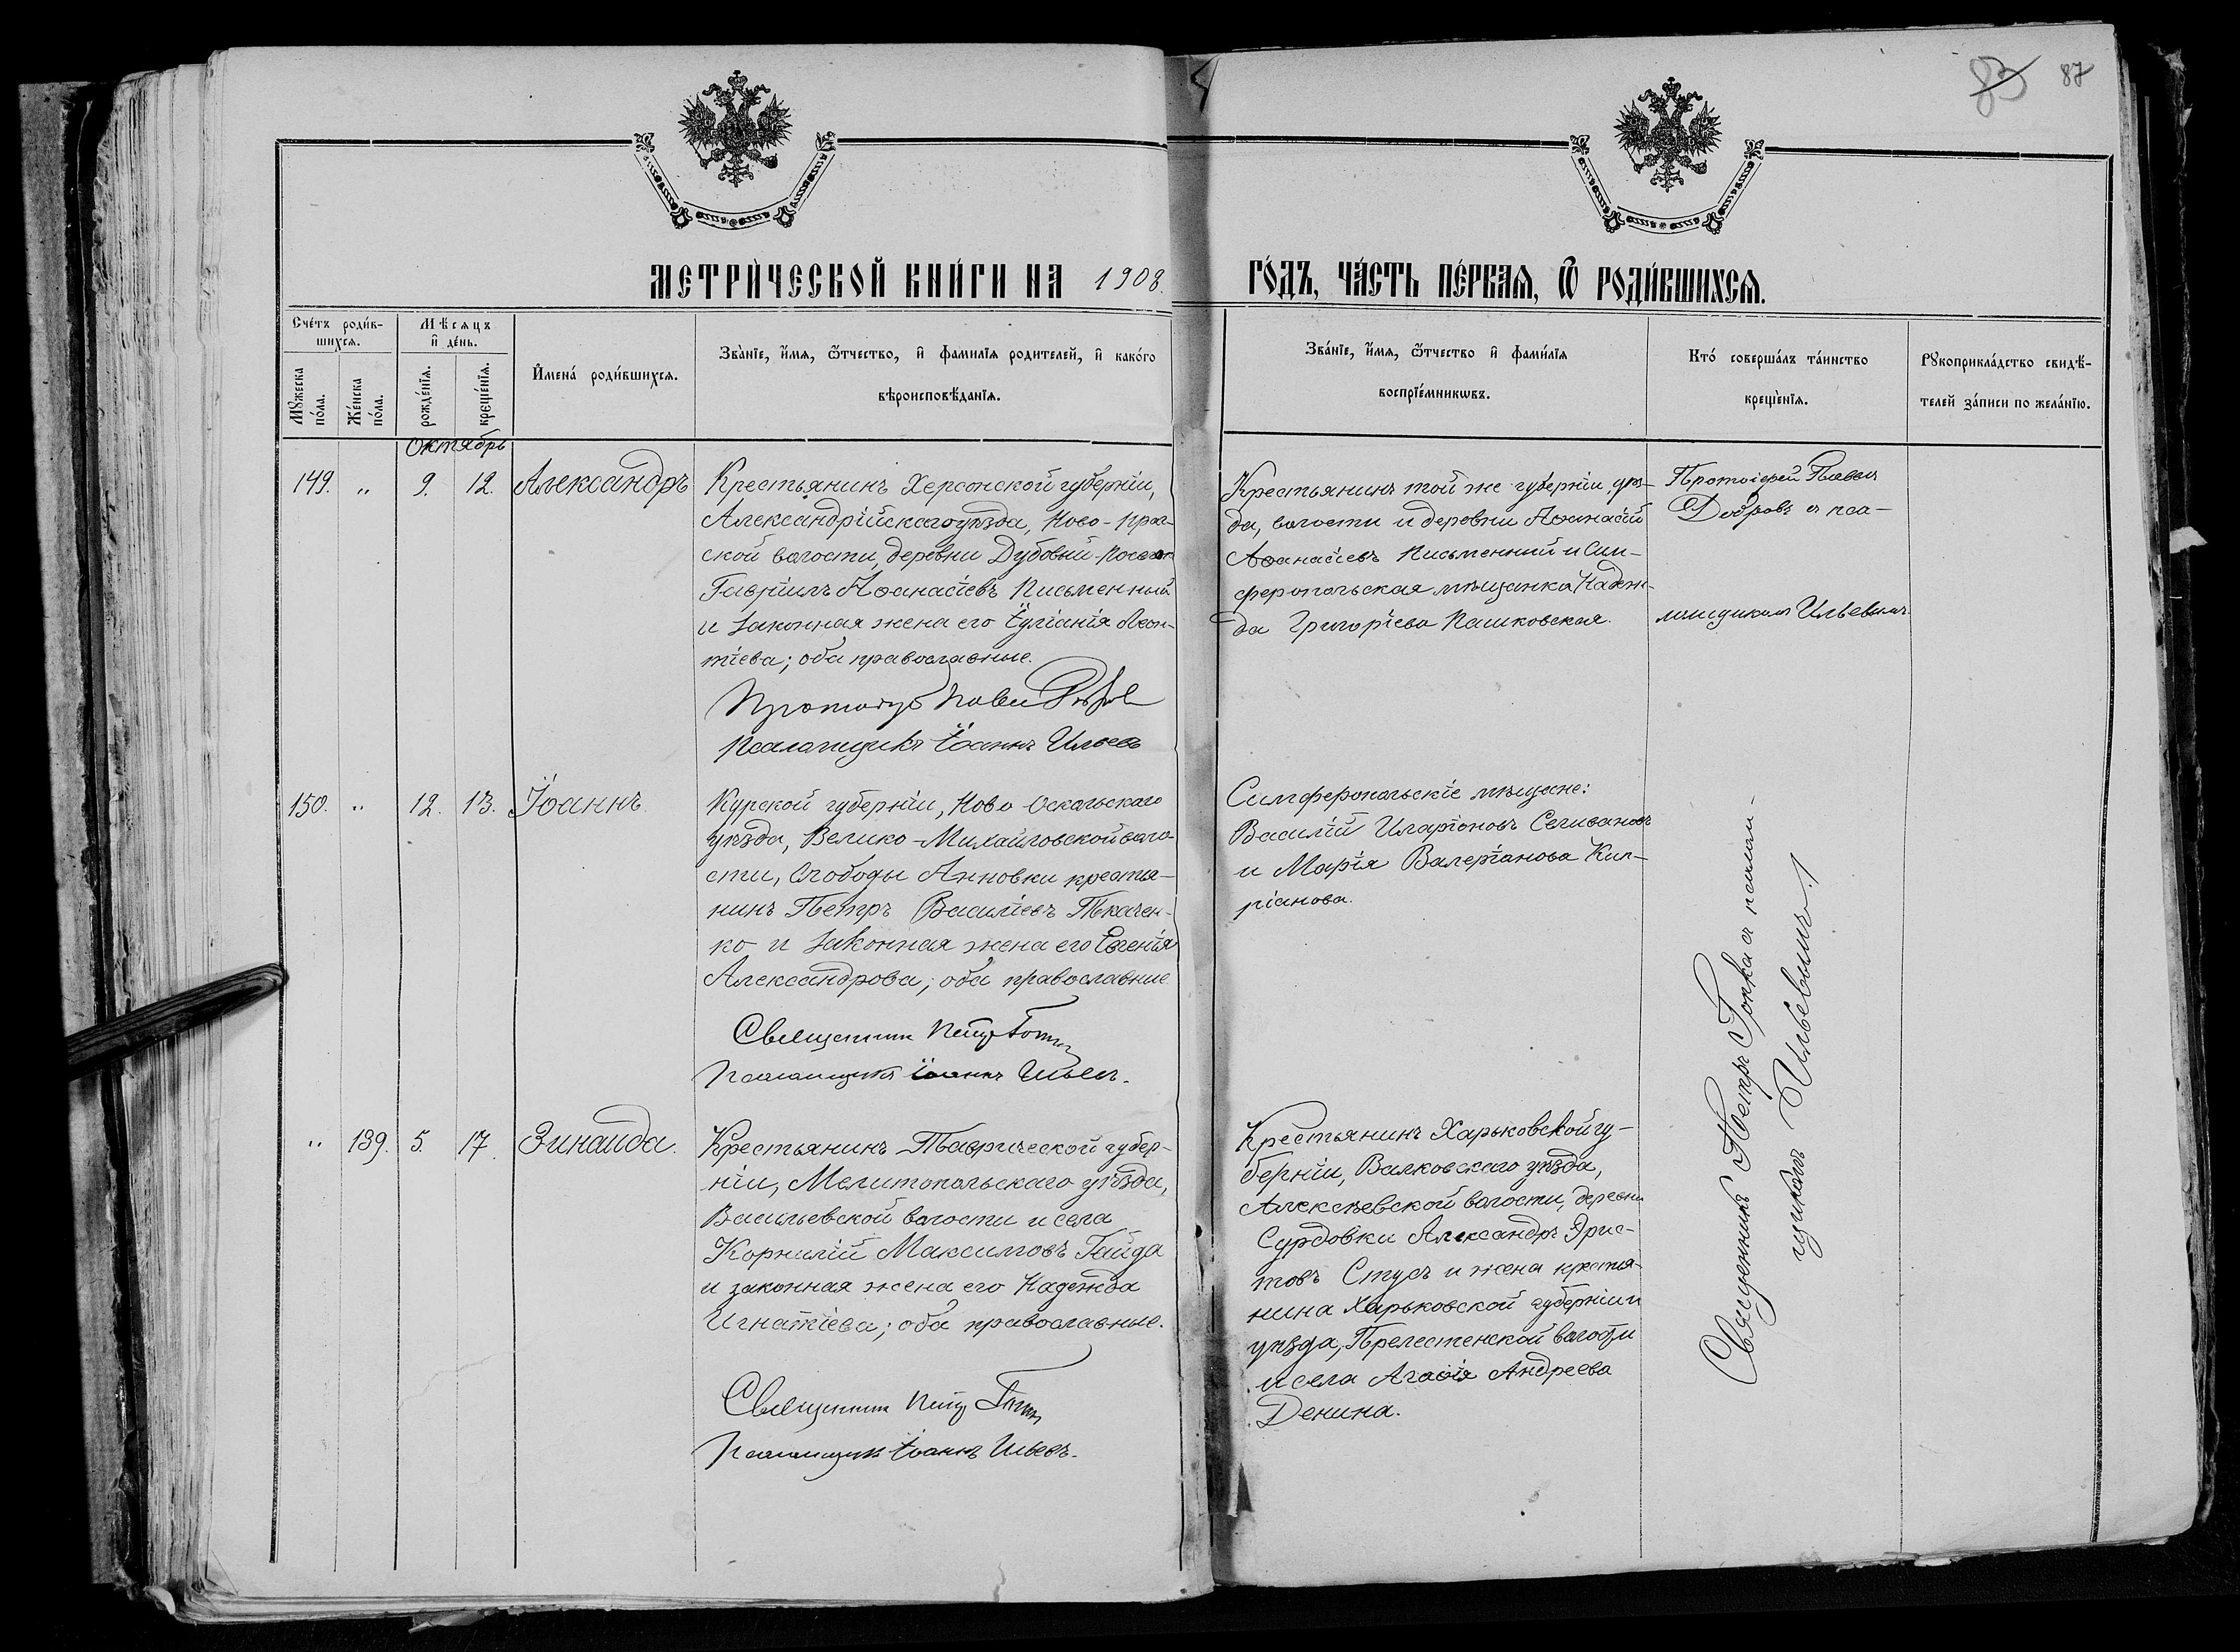 83 87
МЕТРИ́ЧЕСКОЙ КНИ́ГИ НА 1908.
ГО́ДЪ, ЧА́СТЬ ПЕ́РВАЯ, Ѿ РОДИ́ВШИХСЯ.
Сче́тъ роди́в-
шихся.
Мѣсяцъ
и де́нь.
Му́жеска
по́ла.
Же́нска
по́ла.
рожде́нїя.
креще́нїя.
И҆мена́ роди́вшихся.
Зва́нїе, и҆́мя, ѻ҆́тчество, и҆ фами́лїя роди́телей, и҆ како́го
вѣроисповѣ́данїя.
Зва́нїе, и҆́мя, ѻ҆́тчество и҆ фами́лїя
воспрїе́мникѡвъ.
Кто́ соверша́лъ та́инство
креще́нїя.
Рукоприкла́дство свидѣ́-
телей за́писи по жела́нїю.
Октябрь
149. „ 9. 12. Александръ
Крестьянинъ Херсонской губерніи,
Александрійскаго уѣзда, Ново-Праг-
ской волости, деревни Дубовый-Посёлок
Гавріилъ Аѳанасіевъ Письменный
и законная жена его Іуліанія Леон-
тіева; оба православные.
Протоіер Павел Добров
Псаломщикъ Іоаннъ Ильев
Крестьянинъ той же губерніи, уѣз-
да, волости и деревни Аѳанасій
Аѳанасіевъ Письменный и Сим-
феропольская мѣщанка Надеж-
да Григоріева Пашковская.
Протоіерей Павел
Добровъ с пса-
ломщиком Ильевым
150. „ 12. 13. Іоаннъ.
Курской губерніи, Ново-Оскольскаго
уѣзда, Велико-Михайловской воло-
сти, слободы Анновки крестья-
нинъ Петръ Василіевъ Ткачен-
ко и законная жена его Евгенія
Александрова; оба православные
Священник Петр
Псаломщикъ Іоаннъ Ильевъ.
Симферопольскіе мѣщане:
Василій Иларіоновъ Селивановъ
и Марія Валеріанова Кип-
ріанова.
Священникъ Петръ с псалом-
щиком Ильевым
„ 139. 5. 17. Зинаида.
Крестьянинъ Таврической губер-
ніи, Мелитопольскаго уѣзда,
Васильевской волости и села
Корнилій Максимовъ Гайда
и законная жена его Надежда
Игнатіева; оба православные.
Священник Петр
Псаломщик Іоаннъ Ильевъ.
Крестьянинъ Харьковской гу-
берніи, Валковскаго уѣзда,
Алексѣевской волости, деревни
Сурдовки Александръ
Стусъ и жена крестья-
нина Харьковской губерніи и
уѣзда, волости
и села Агаѳія Андреева
Денина.